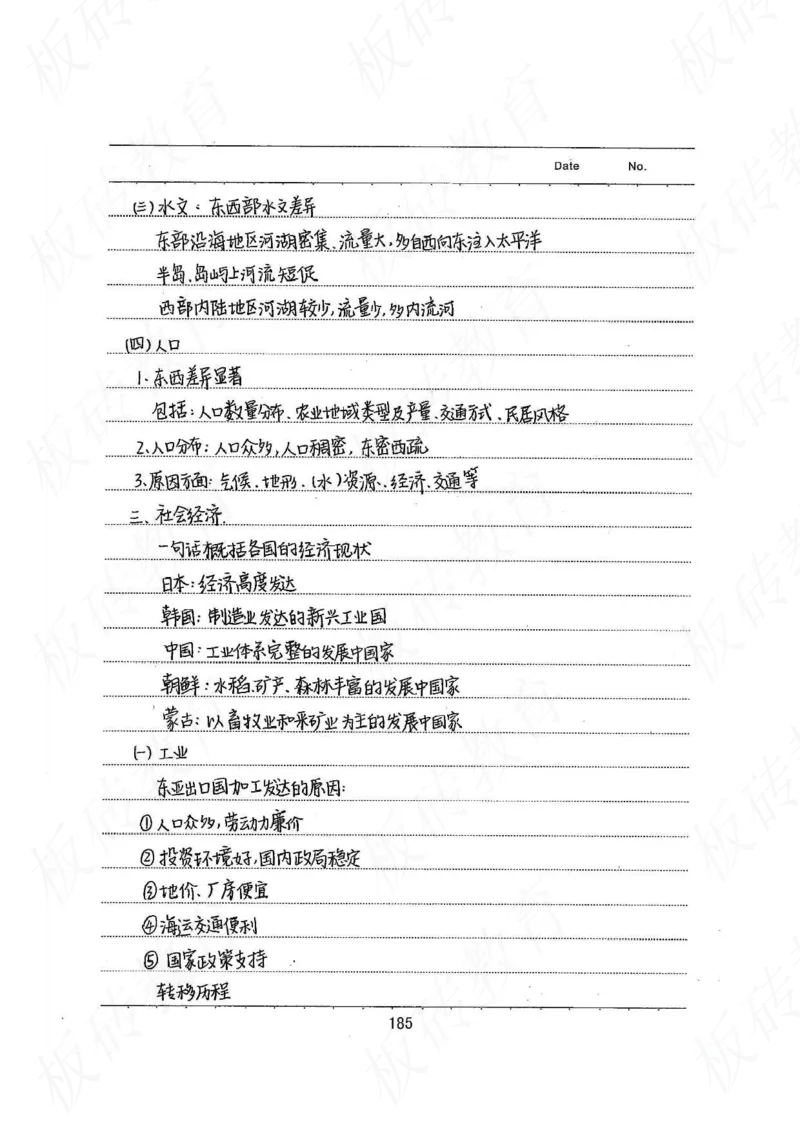 Date No.
(三)水文：东西部水文差异
东部沿海地区河湖密集、流量大,多自西向东注入太平洋
半岛、岛屿上河流短促
西部内陆地区河湖较少,流量少,多内流河
(四)人口
1、东西差异显著
包括：人口数量分布、农业地域类型及产量、交通方式、民居风格
2、人口分布：人口众多,人口稠密，东密西疏
3、原因方面：气候、地形、(水)资源、经济、交通等
三、社会经济
一句话概括各国的经济现状
日本：经济高度发达
韩国：制造业发达的新兴工业国
中国：工业体系完整的发展中国家
朝鲜：水稻、矿产、森林丰富的发展中国家
蒙古：以畜牧业和采矿业为主的发展中国家
(一)工业
东亚出口国加工发达的原因：
①人口众多,劳动力廉价
②投资环境好,国内政局稳定
③地价、厂房便宜
④海运交通便利
⑤国家政策支持
转移历程
185
板砖教育